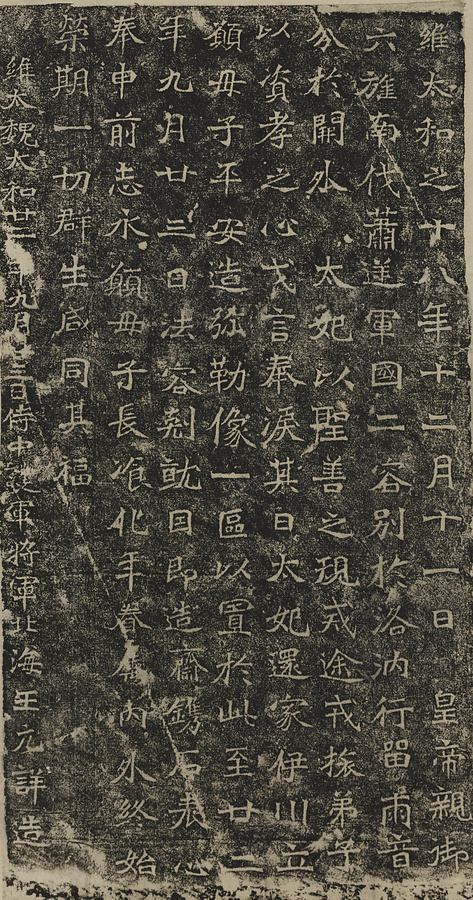 維太和之十八年十二月十一日皇帝親御
六旌南伐蕭逆軍國二容別於洛汭行留兩音
分於關外太妃以聖善之規戒途戎旅弟子
以資孝之心戈言奉淚其日太妃還家伊川立
願母子平安造弥勒像一區以置於此至廿二
年九月廿三日法容剋就因即造齋鐫石表心
奉申前志永願母子長飡化年眷屬內外終始
榮期一切群生咸同其福
維太魏太和廿二年九月廿三日侍中護軍將軍北海王元詳造